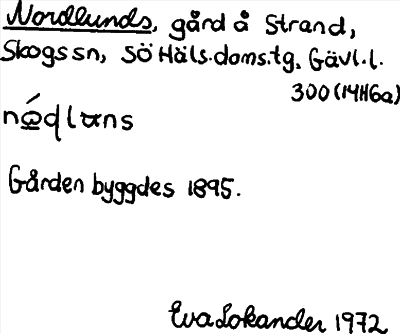 Nordlunds, gård å Strand,
Skogs sn, Sö Häls. doms.tg, Gävl.l.
300 (14H6a)
Gården byggdes 1895.
Eva Lokander 1972